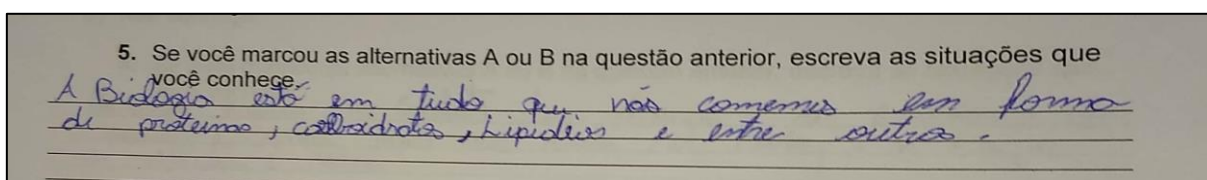 5. Se você marcou as alternativas A ou B na questão anterior, escreva as situações que
você conhece.
A Biologia está em tudo que nós comemos em forma
de proteína, carboidratos, Lipídios e entre outros.